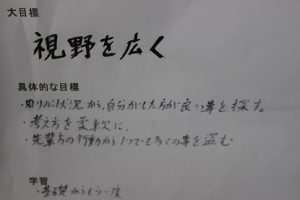 大目標
視野を広く
具体的な目標
・周りの状況から、自分がした方が良い事を探す。
・考え方を柔軟に
・先輩方の行動から1つでも多くの事を盗む
学習
・基礎からもう一度